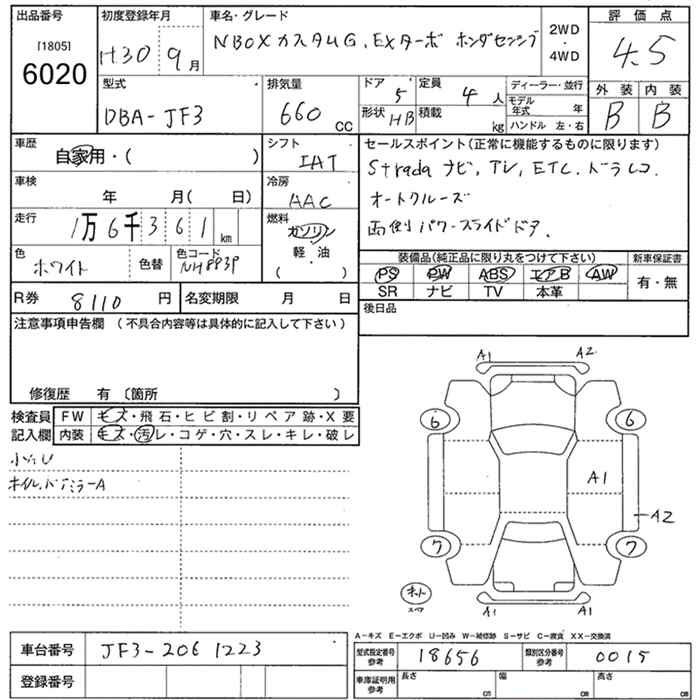 出品番号 初度登録年月 車名・グレード 2WD・4WD 評価点
[1805] 6020 H30 9月 NBOXカスタムG,EXターボ ホンダセンシング 4.5
型式 排気量 ドア 定員 ディーラー・並行 外装 内装
DBA-JF3 660cc 5 4人 モデル年式 年 B B
形状 HB 積載 kg ハンドル 左・右
車歴 シフト セールスポイント(正常に機能するものに限ります)
自家用・( ) IAT Stradaナビ,TV,ETC.ドラレコ.
車検 冷房 オートクルーズ
年 月( 日) AAC 両側パワースライドドア.
走行 燃料
1万6千361km ガソリン 軽・油 ( )
色 色コード 装備品(純正品に限り丸をつけて下さい) 新車保証書
ホワイト 色替 NH883P PS PW ABS エアB AW 有・無
SR ナビ TV 本革
R券 8110円 名変期限 月 日 後日品
注意事項申告欄 (不具合内容等は具体的に記入して下さい)
修復歴 有 〔箇所 〕
検査員記入欄 FW キズ・飛石・ヒビ割・リペア跡・X要
内装 キズ・汚レ・コゲ・穴・スレ・キレ・破レ
小汚レ
A1 A2
6 6
A1
A2
7 7
スペア
A1 A1
A-キズ E-エクボ U-凹み W-補修跡 S-サビ C-腐食 XX-交換済
車台番号 JF3-2061223 型式指定番号参考 18656 類別区分番号参考 0015
登録番号 車庫証明用参考 長さ cm 幅 cm 高さ cm